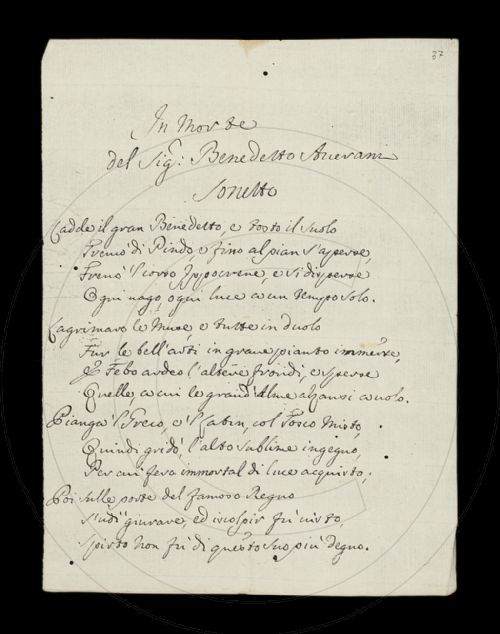 37
In Morte
del Sig.r Benedetto Averani
Sonetto
Cadde il gran Benedetto, e tosto il Suolo
Tremò di Pindo, e fino al pian s'aperse,
Frenò 'l corso Ippocrene, e si disperse
Ogni vago, ogni luce a un tempo solo.
Lagrimaro le Muse, e tutte in duolo
Fur le bell'arti in grave pianto immerse,
E Febo ardeo l'altere frondi, e sperse
Quelle, a cui le grand'Alme alzansi a volo.
Pianga 'l Greco, e 'l Latin, col Tosco misto,
Quindi gridò, l'alto sublime ingegno,
Per cui fera immortal di luce acquisto;
Poi sulle porte del famoso Regno
S'udì giurare, ed iscolpir fu visto,
Spirto non fu di questo suo più degno.